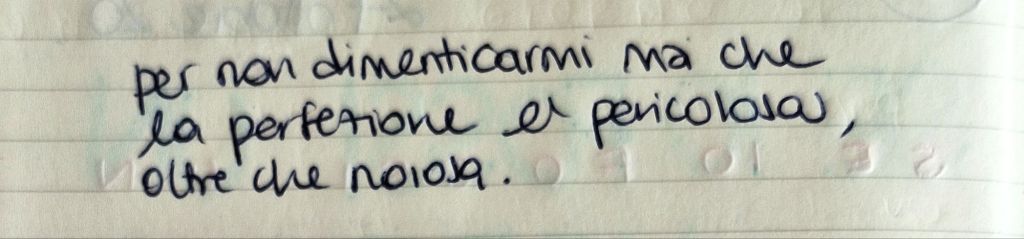 per non dimenticarmi mai che
la perfezione è pericolosa,
oltre che noiosa.